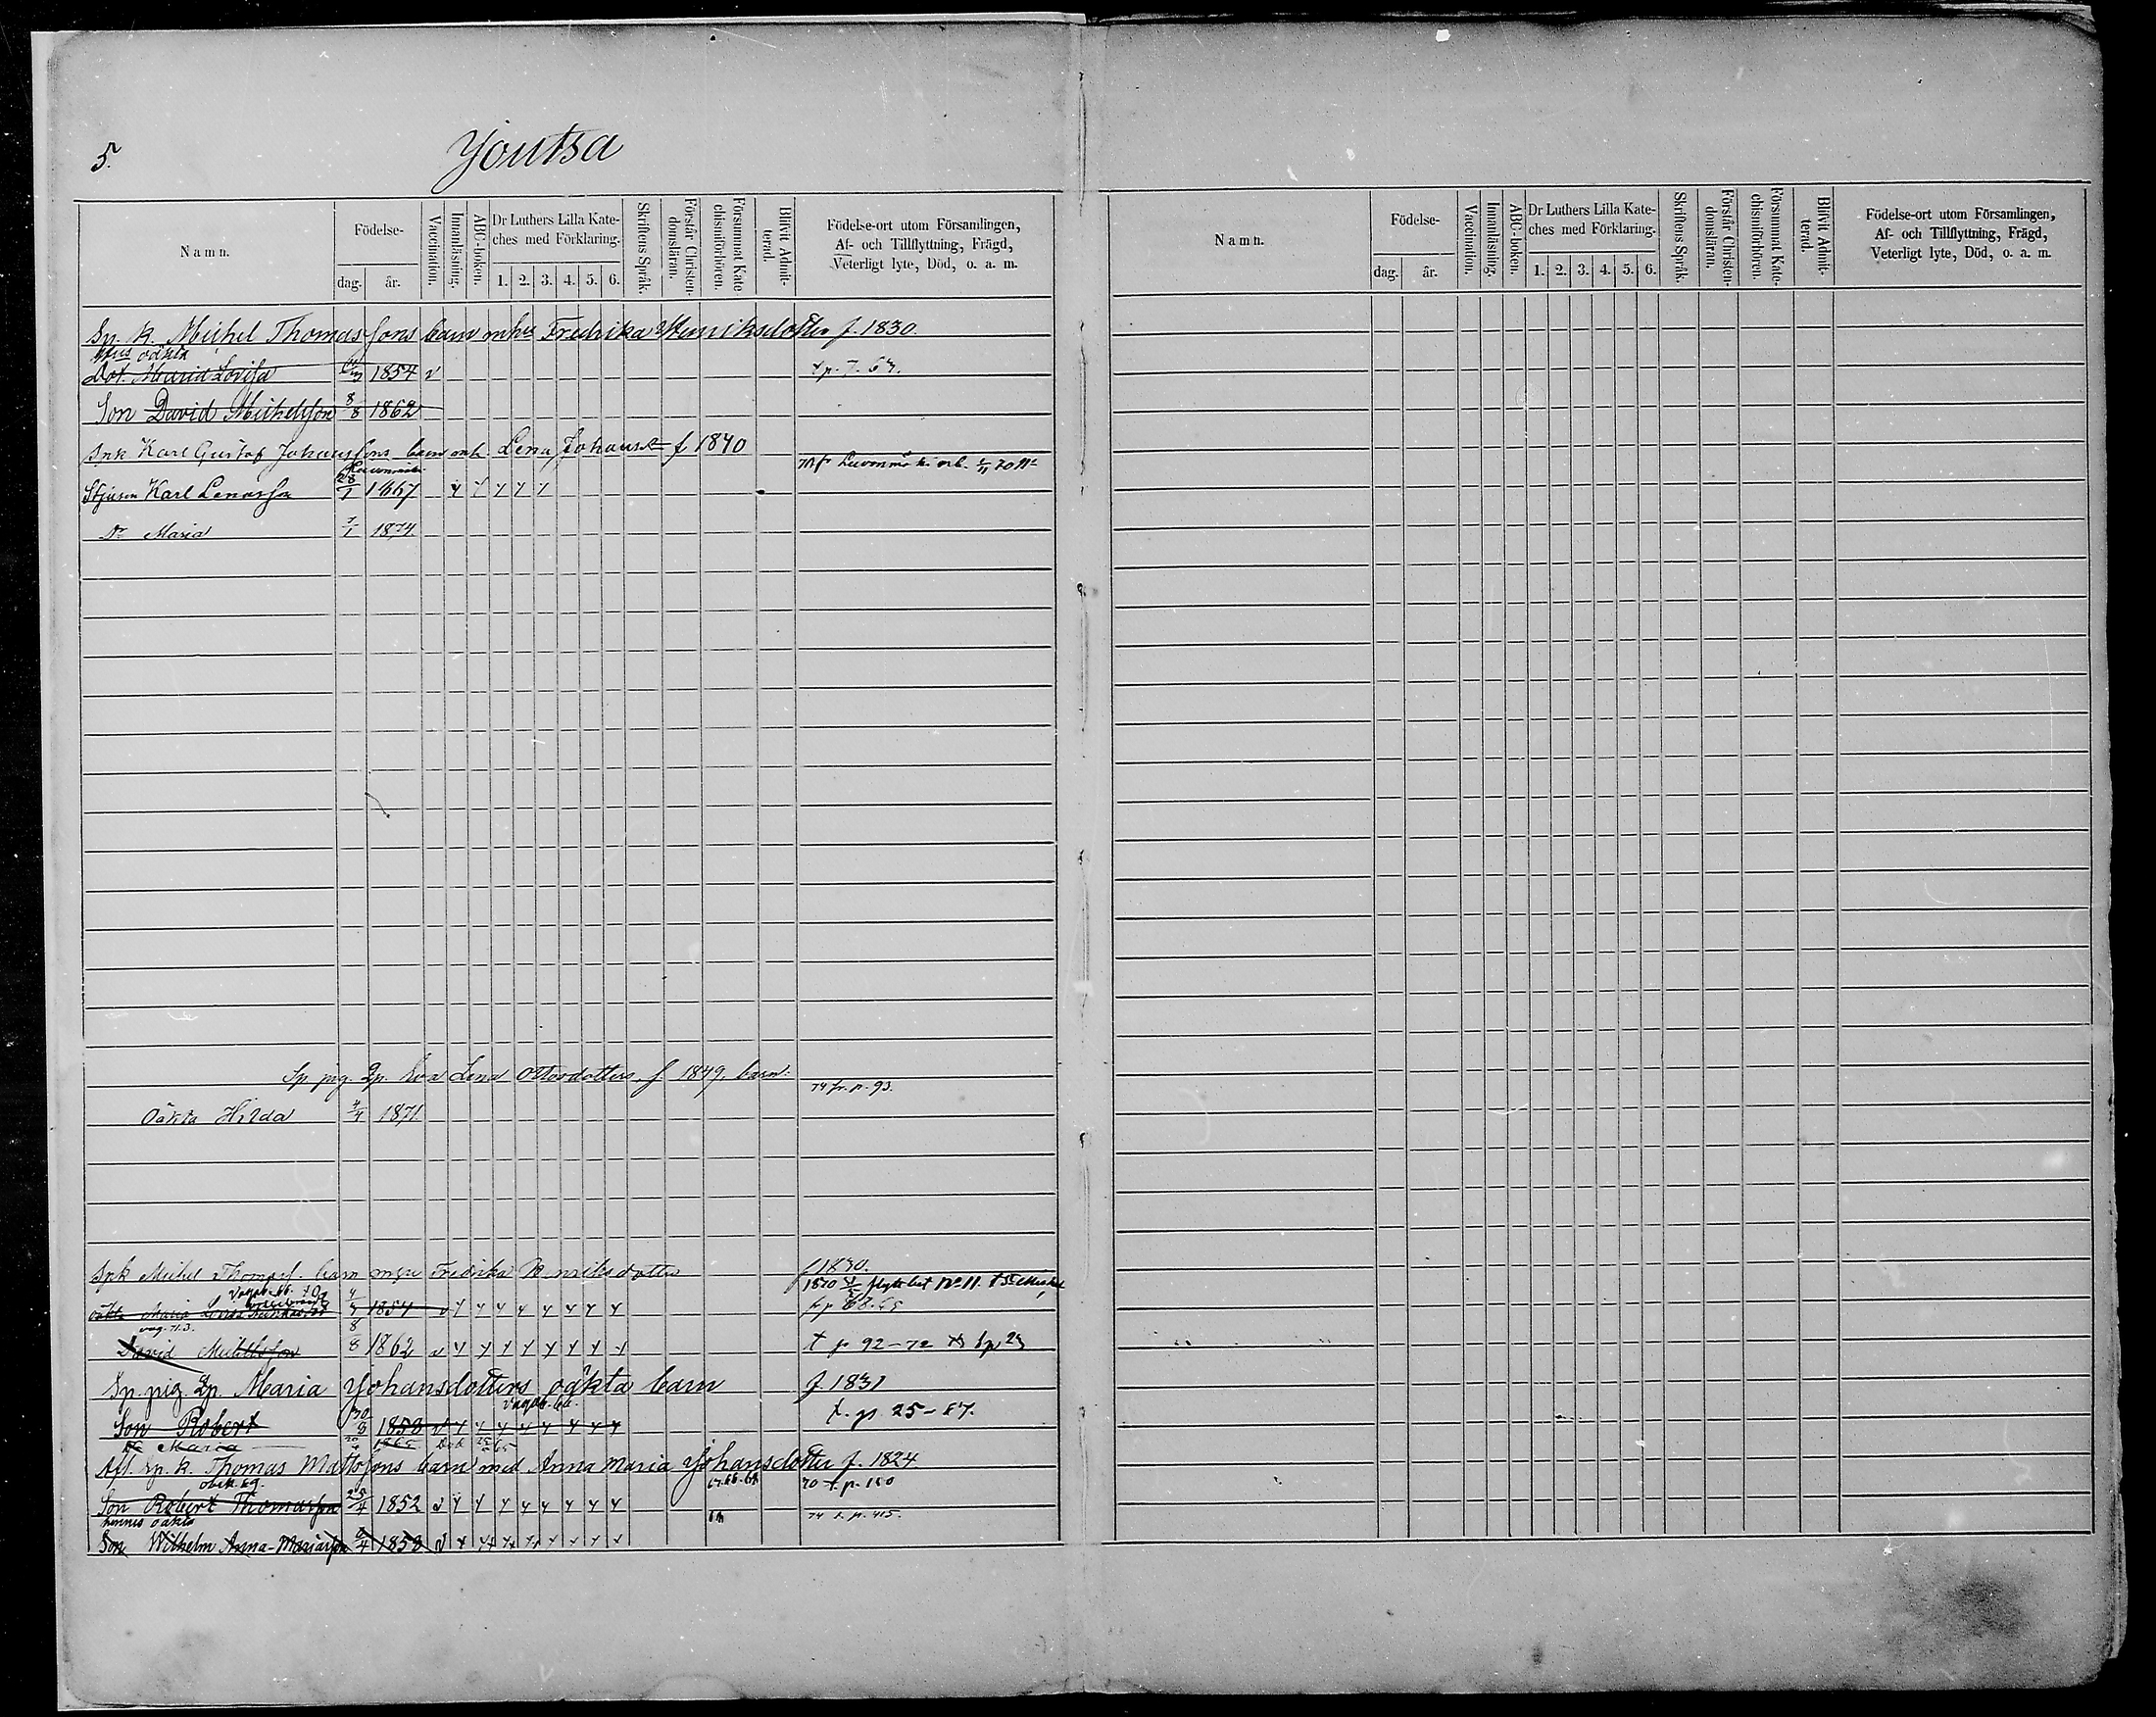 5.
Joutsa
Namn.
Födelse-
dag. år.
Vaccination.
Innanläsning.
ABC-boken.
Dr Luthers Lilla Kate-
ches med Förklaring.
1. 2. 3. 4. 5. 6.
Skriftens Språk.
Förstår Christen-
domsläran.
Försummat Kate-
chismiförhören.
Blifvit Admit-
terad.
Födelse-ort utom Församlingen,
Af- och Tillflyttning, Frägd,
Veterligt lyte, Död, o. a. m.
Sp. k. Michel Thomassons barn m hu Fredrika Henriksdotter f. 1830.
oäkta
Dot. Maria Lovisa 1854 v
Son David Michelsson 8/8 1862
Spk Karl Gustaf Johanssons barn m h Lena Johansd f. 1840
Karl Lenasson 28/1 1867
Dr Maria 7/1 1874
Sp. pig. Lp. Eva Lena Ottosdotters f. 1849. barn. 74 fr. p. 93.
Oäkta Hilda 4/4 1871
Spk Michel Thomass. barn m hu Fredrika Henriksdotter f 1830.
oäkta Maria 1854
David Michelsson 8/8 1862 t p 92-72
Sp. pig. Lp. Maria Johansdotters oäkta barn f. 1831
Son Robert 30/8 1858 t. p. 25-67.
Dr Maria 1865
Afl. sp. k. Thomas Mattssons barn med Anna Maria Johansdotter f. 1824
67.68.69 70 t. p. 180
Son Robert Thomasson 25/4 1852 v
hennes oäkta 74 t. p. 415.
Son Wilhelm Anna-Mariasson 1858 v
Namn.
Födelse-
dag. år.
Vaccination.
Innanläsning.
ABC-boken.
Dr Luthers Lilla Kate-
ches med Förklaring.
1. 2. 3. 4. 5. 6.
Skriftens Språk.
Förstår Christen-
domsläran.
Försummat Kate-
chismiförhören.
Blifvit Admit-
terad.
Födelse-ort utom Församlingen,
Af- och Tillflyttning, Frägd,
Veterligt lyte, Död, o. a. m.